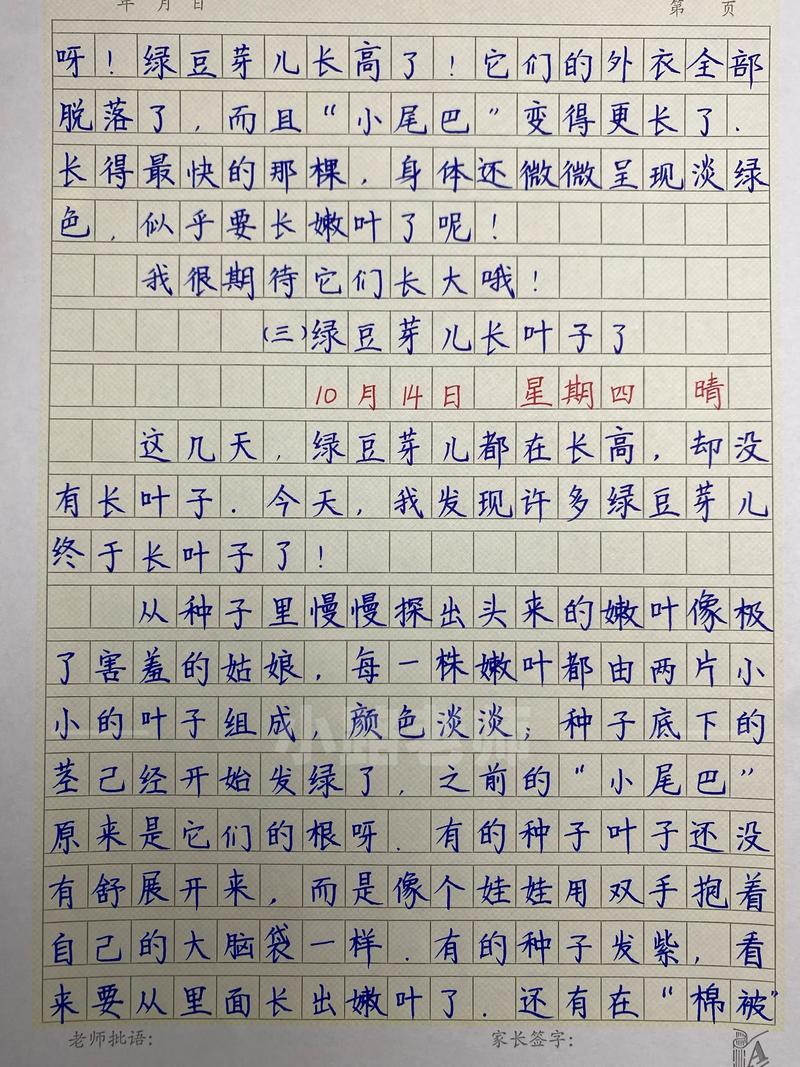 年 月 日 第 页
呀！绿豆芽儿长高了！它们的外衣全部
脱落了，而且“小尾巴”变得更长了．
长得最快的那棵，身体还微微呈现淡绿
色，似乎要长嫩叶了呢！
我很期待它们长大哦！
（三）绿豆芽儿长叶子了
10月14日 星期四 晴
这几天，绿豆芽儿都在长高，却没
有长叶子．今天，我发现许多绿豆芽儿
终于长叶子了！
从种子里慢慢探出头来的嫩叶像极
了害羞的姑娘，每一株嫩叶都由两片小
小的叶子组成，颜色淡淡；种子底下的
茎已经开始发绿了，之前的“小尾巴”
原来是它们的根呀．有的种子叶子还没
有舒展开来，而是像个娃娃用双手抱着
自己的大脑袋一样．有的种子发紫，看
来要从里面长出嫩叶了．还有在“棉被”
老师批语： 家长签字：